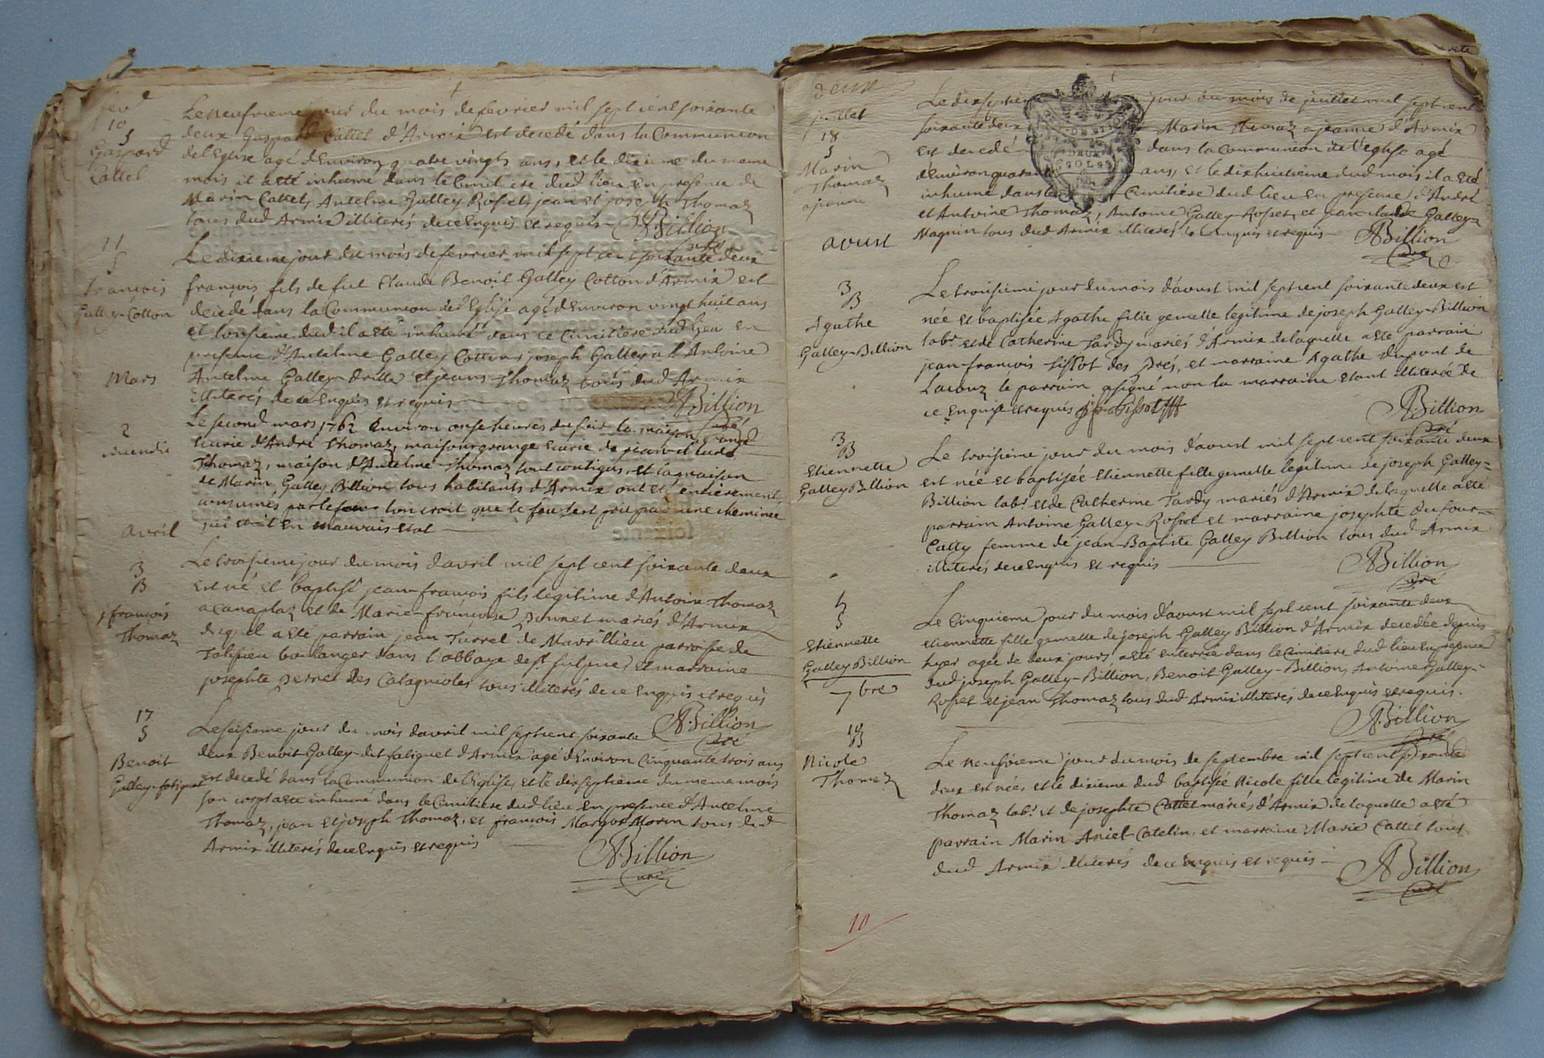 10
S
Gaspard
Cattet
Le neufvieme jour du mois de fevrier mil sept cent soixante
deux Gaspard Cattet d'Armix est decedé dans la Communion
de l'Eglise agé d'Environ quatre vingts ans, et le dixieme du meme
mois il a eté inhumé dans le Cimetiere dud lieu En presence de
Marin Cattet, Antelme Galley Rosset, jean et joseph Thomaz
tous dud Armix illiterés de ce Enquis et requis
ABillion
curé
11
S
françois
Galley-Cotton
Le dixieme jour du mois de fevrier mil sept cent soixante deux
françois fils de feu Claude Benoit Galley Cotton d'Armix est
decedé dans la Communion de l'Eglise agé d'Environ vingt huit ans
et l'onzieme dud il a eté inhumé dans le Cimetiere dud lieu en
presence d'Antelme Galley Cotton, joseph Galley Antoine
Antelme Galley-drille et jean Thomaz tous dud Armix
illiterés de ce Enquis et requis
ABillion
curé
Mars
2
incendie
Le second mars 1762 Environ onse heures du soir la maison, grange
Ecurie d'André Thomaz, maison grange Ecurie de jean-claude
Thomaz, maison d'Antelme Thomaz tout contigus, et la maison
de Marin Galley Billion tous habitants d'Armix ont eté entierement
consumés par le feu l'on croit que le feu s'est pris par une cheminée
qui etoit En mauvais etat
avril
3
B
j françois
Thomaz
Le troisieme jour du mois d'avril mil sept cent soixante deux
est né et baptisé jean-françois fils legitime d'Antoine Thomaz
a Canaplaz et de Marie-françoise mariés d'Armix
duquel a eté parrain jean Turrel de Mavrillieu parroisse de
boulanger dans l'abbaye de St Sulpice et marraine
josephte des Catagnoles tous illiterés de ce Enquis et requis
ABillion
curé
17
S
Benoit
Galley-fatiguet
Le seisieme jour du mois d'avril mil sept cent soixante
deux Benoit Galley-dit fatiguet d'Armix agé d'Environ Cinquante trois ans
est decedé dans la Communion de l'Eglise, et le dixseptieme du meme mois
son corps a eté inhumé dans le Cimetiere dud lieu En presence d'Antelme
Thomaz, jean et joseph Thomaz, et françois Morin tous dud
Armix illiterés de ce Enquis et requis
ABillion
curé
deux
juillet
18
S
Marin
Thomaz
ajeanne
Le dixseptieme jour du mois de juillet mil sept cent
soixante deux Marin Thomaz ajeanne d'Armix
est decedé dans la Communion de l'Eglise agé
d'Environ ans, et le dixhuitieme dud mois il a eté
inhumé dans le Cimetiere dud lieu en presence d'André
et Antoine Thomaz, Antoine Galley-Rosset, et jean claude Galley-
Maquin tous dud Armix illiterés de ce Enquis et requis
ABillion
curé
DEUX
SOLS
aoust
3
B
Agathe
Galley-Billion
Le troisieme jour du mois d'aoust mil sept cent soixante deux est
née et baptisée Agathe fille gemelle legitime de joseph Galley-Billion
labr et de Catherine Tardy mariés d'Armix de laquelle a eté parrain
jean-françois Tissot des Prés, et marraine Agathe Dupont de
Lacoux le parrain a signé non la marraine etant illiterée de
ce Enquise et requis jf Tissot
ABillion
curé
3
B
Etiennette
Galley Billion
Le troisieme jour du mois d'aoust mil sept cent soixante deux
est née et baptisée Etiennette fille gemelle legitime de joseph Galley-
Billion labr et de Catherine Tardy mariés d'Armix de laquelle a eté
parrain Antoine Galley-Rosset et marraine josephte Dufour-
Catty femme de jean-Baptiste Galley Billion tous dud Armix
illiterés de ce Enquis et requis
ABillion
curé
5
S
Etiennette
Galley Billion
Le Cinquieme jour du mois d'aoust mil sept cent soixante deux
etiennette fille gemelle de joseph Galley Billion d'Armix decedée depuis
hyer agée de deux jours, a eté enterrée dans le Cimetiere dud lieu En presence
dud joseph Galley-Billion, Benoit Galley-Billion, Antoine Galley-
Rosset et jean Thomaz tous dud Armix illiterés de ce Enquis et requis.
ABillion
curé
7bre
10
B
Nicole
Thomaz
Le neufvieme jour du mois de septembre mil sept cent soixante
deux est née, et le dixieme dud baptisée Nicole fille legitime de Marin
Thomaz labr et de josephte Cattet mariés d'Armix de laquelle a eté
parrain Marin Aniel-Catelin, et marraine Marie Cattet tous
dud Armix illiterés de ce Enquis et requis
ABillion
curé
10